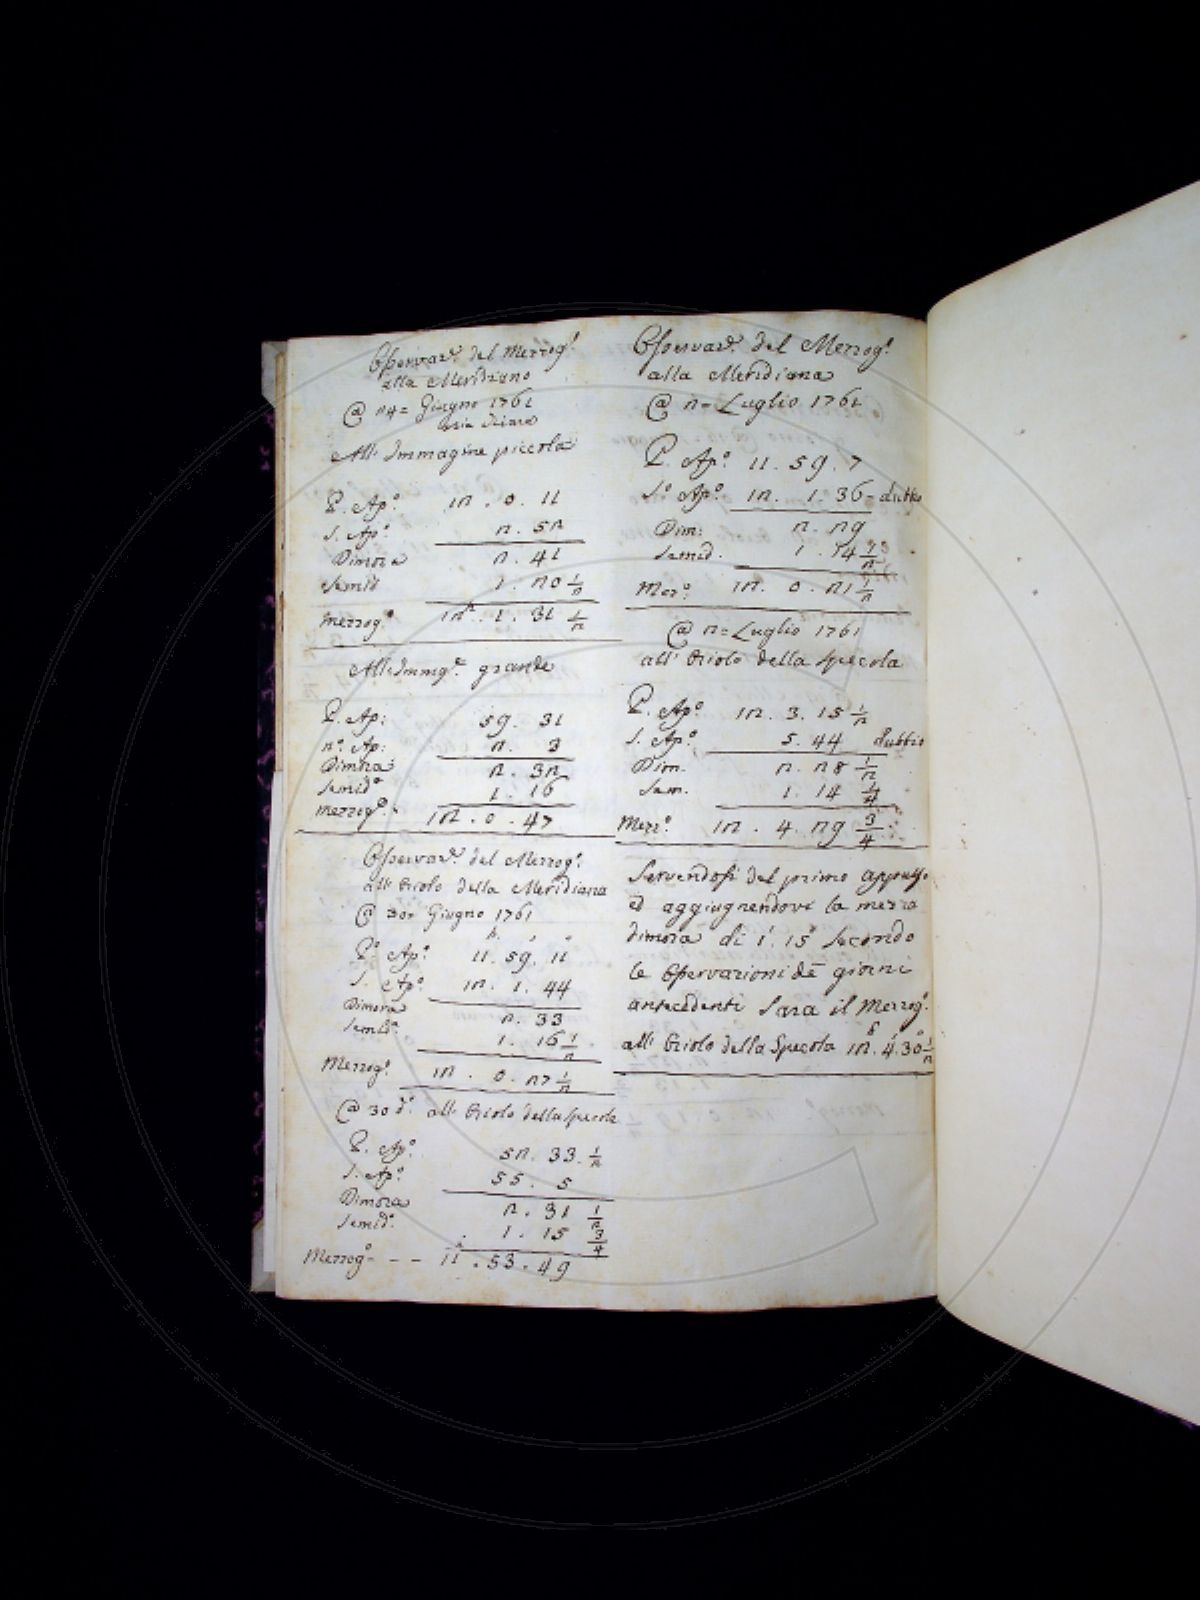 Osservaz.e del Mezzog.o
alla Meridiana
@ 24= Giugno 1761
All' Immagine piccola
P. Ap.o 12 . 0 . 11
S. Ap.o 2 . 52
Dimora 2 . 41
Semid 1 . 20 1/2
Mezzog.o 12h . 1 . 31 1/2
All' Immag.e grande
P. Ap: 59 . 31
2.o Ap: 2 . 3
Dimora 2 . 32
Semid.a 1 . 16
Mezzog.o 12 . 0 . 47
Osservaz.e del Mezzog.o
all' Oriolo della Meridiana
@ 30= Giugno 1761
P.o Ap.o 11h . 59' . 11"
S. Ap.o 12 . 1 . 44
Dimora 2 . 33
Semid.a 1 . 16 1/2
Mezzog.o 12 . 0 . 27 1/2
@ 30 d.o all' Oriolo della Specola
P. Ap.o 52 . 33 . 1/2
S. Ap.o 55 . 5
Dimora 2 . 31 1/2
Semid.a 1 . 15 3/4
Mezzog.o - - - 11h . 53 . 49
Osservaz.e del Mezzog.o
alla Meridiana
@ 2= Luglio 1761
P. Ap.o 11 . 59 . 7
S.o Ap.o 12 . 1 . 36 - dubbio
Dim: 2 . 29
Semid. 1 . 14 1/2
Mez.o 12 . 0 . 21 1/2
@ 2= Luglio 1761
all' Oriolo della Specola
P. Ap.o 12 . 3 . 15 1/2
S. Ap.o 5 . 44 dubbio
Dim. 2 . 28 1/2
Sem. 1 . 14 1/4
Mezz.o 12 . 4 . 29 3/4
Servendosi del primo appulso
ed aggiugnendovi la mezza
dimora di 1' . 15" secondo
le Osservazioni de giorni
antecedenti Sarà il Mezzog.o
all' Oriolo della Specola 12h . 4' . 30" 1/2